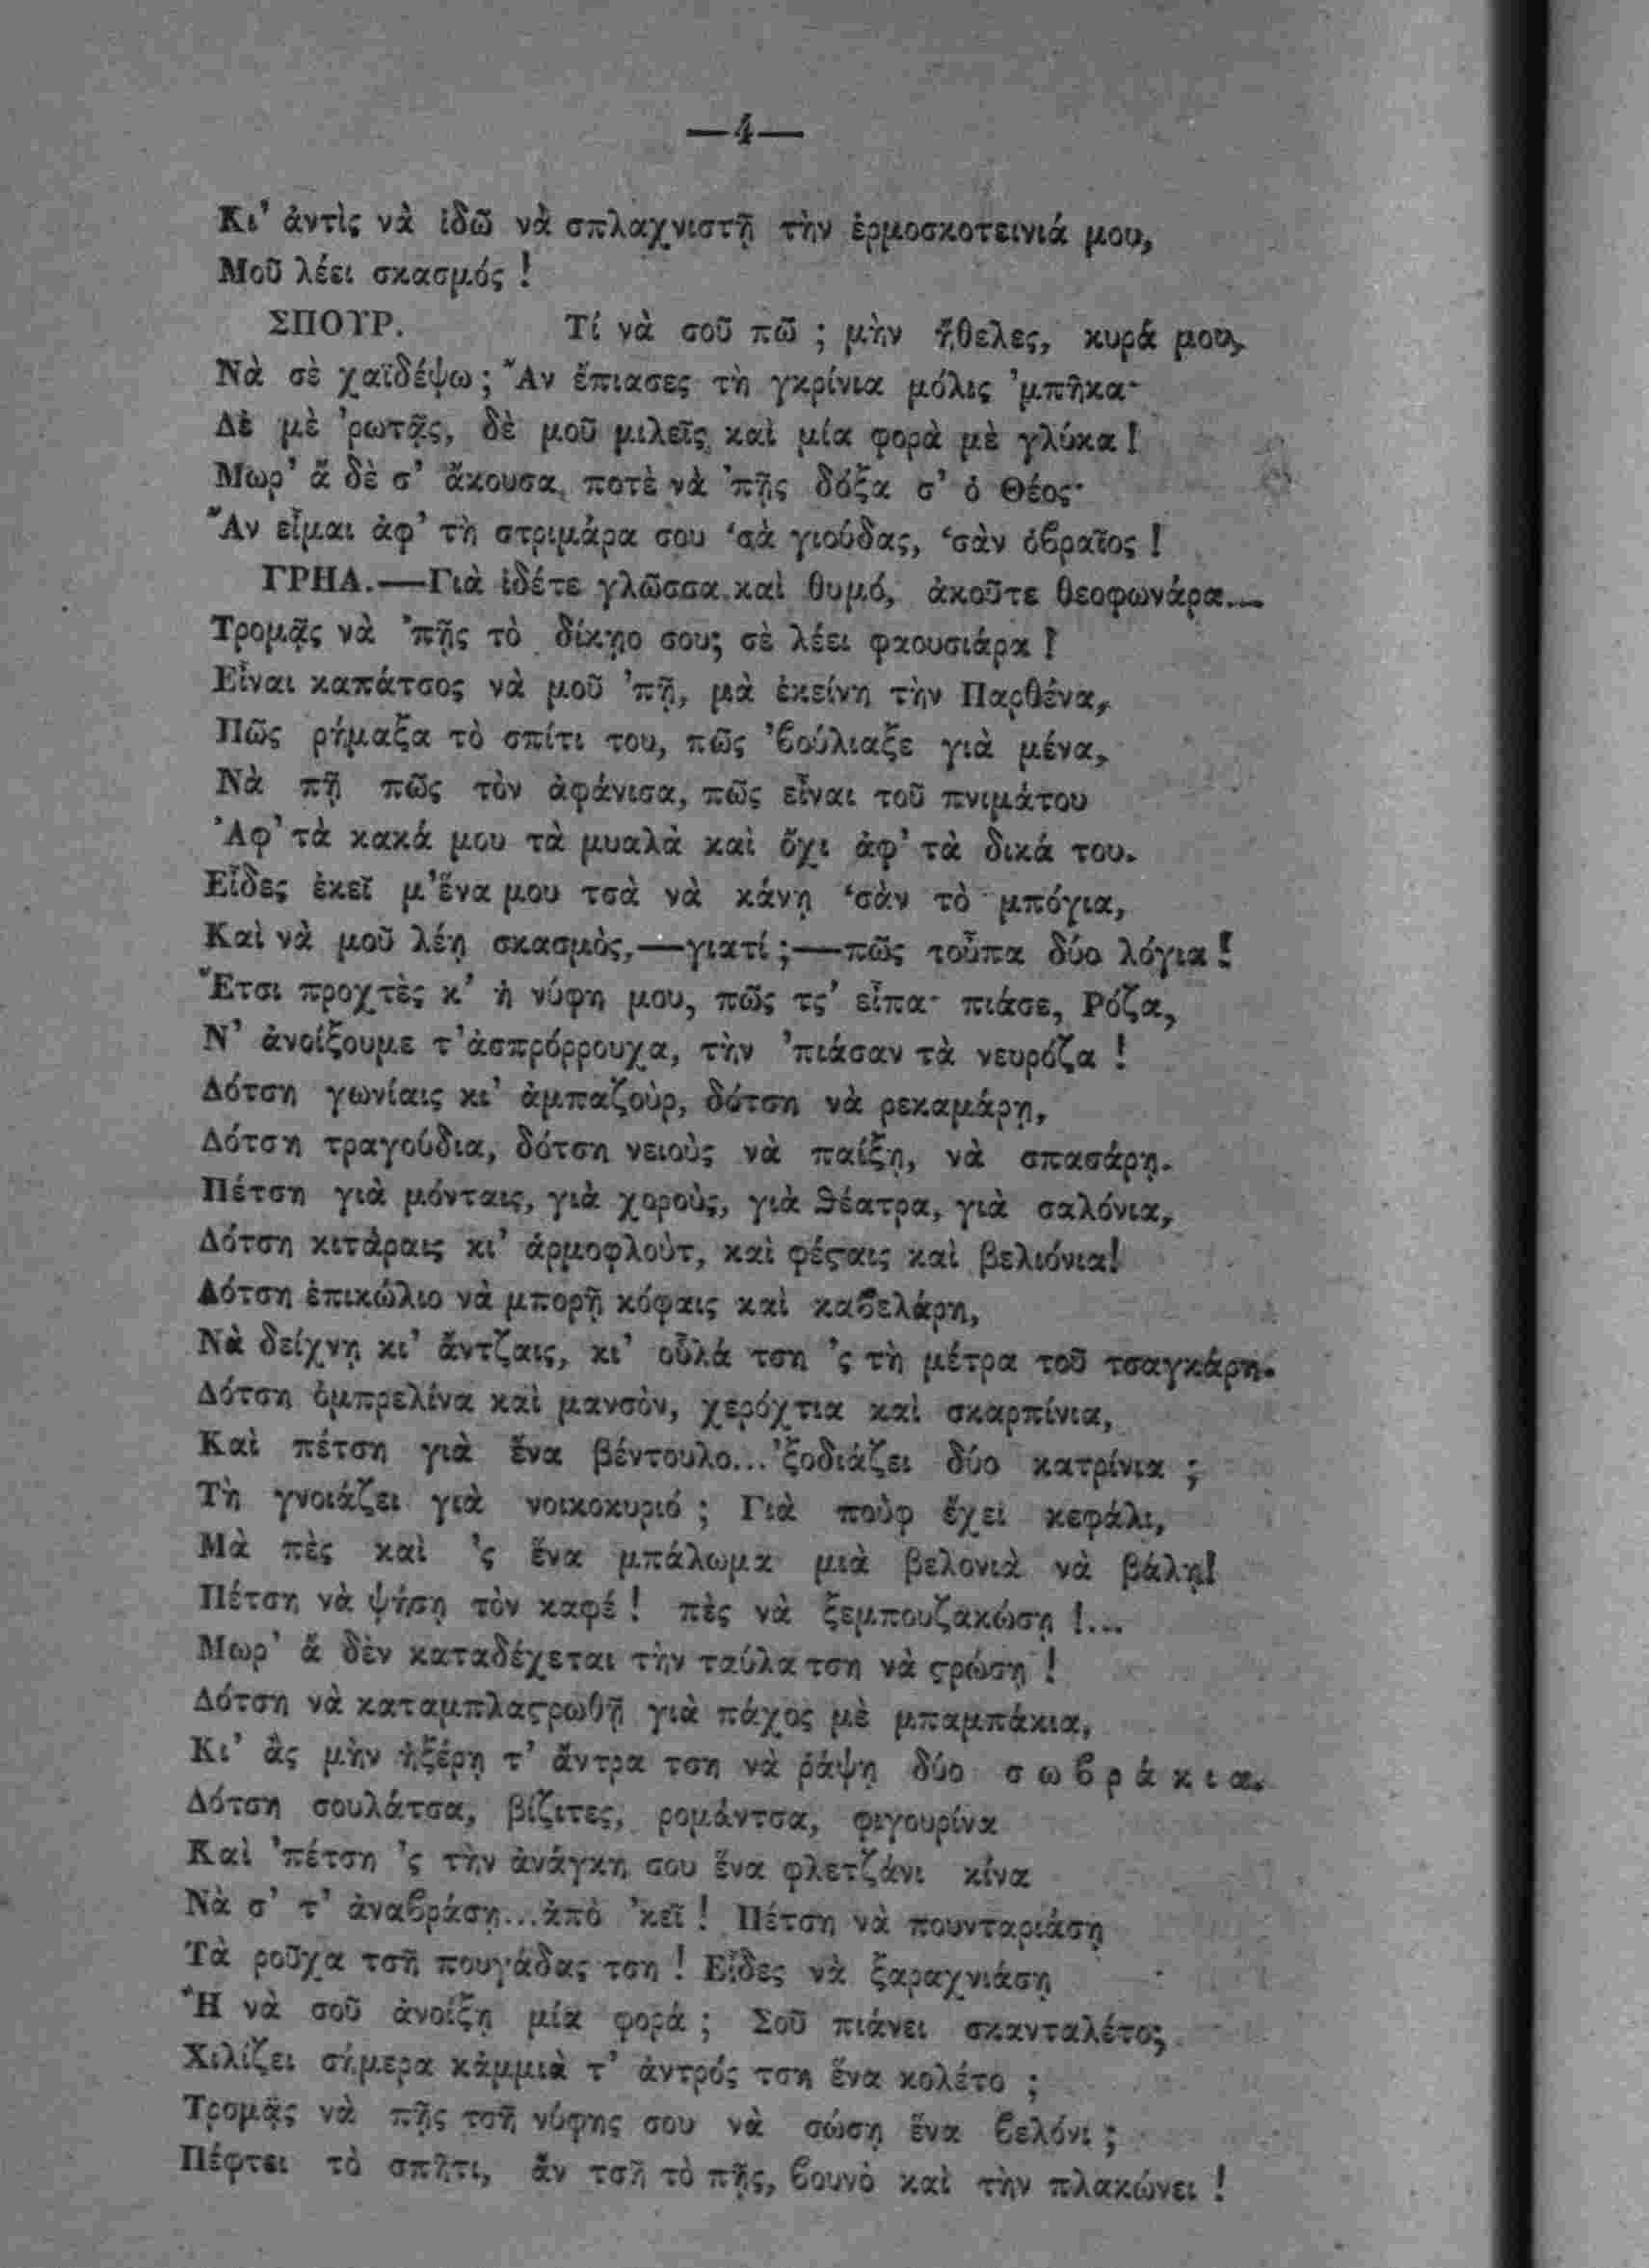 —4—
Κι' ἀντὶς νὰ ἰδῶ νὰ σπλαχνιστῇ τὴν ἐρμοσκοτεινιά μου,
Μοῦ λέει σκασμός !
ΣΠΟΥΡ. Τί νὰ σοῦ πῶ ; μὴν ἤθελες, κυρά μου,
Νὰ σὲ χαϊδέψω ; Ἂν ἔπιασες τὴ γκρίνια μόλις 'μπῆκα·
Δὲ μὲ 'ρωτᾷς, δὲ μοῦ μιλεῖς καὶ μία φορὰ μὲ γλύκα !
Μωρ' ἂ δὲ σ' ἄκουσα ποτὲ νὰ 'πῇς δόξα σ' ὁ Θέος·
Ἂν εἶμαι ἀφ' τὴ στριμάρα σου 'σὰ γιούδας, 'σὰν ὀβραῖος !
ΓΡΗΑ.—Γιὰ ἰδέτε γλῶσσα καὶ θυμό, ἀκοῦτε θεοφωνάρα...
Τρομᾷς νὰ 'πῇς τὸ δίκῃο σου; σὲ λέει φαουσιάρα !
Εἶναι καπάτσος νὰ μοῦ 'πῇ, μὰ ἐκείνη τὴν Παρθένα,
Πῶς ρήμαξα τὸ σπίτι του, πῶς 'βούλιαξε γιὰ μένα,
Νὰ πῇ πῶς τὸν ἀφάνισα, πῶς εἶναι τοῦ πνιμάτου
Ἀφ' τὰ κακά μου τὰ μυαλὰ καὶ ὄχι ἀφ' τὰ δικά του.
Εἶδες ἐκεῖ μ'ἕνα μου τσὰ νὰ κάνῃ 'σὰν τὸ μπόγια,
Καὶ νὰ μοῦ λέῃ σκασμὸς,—γιατί ;—πῶς τοὖπα δύο λόγια !
Ἔτσι προχτὲς κ' ἡ νύφη μου, πῶς τς' εἶπα· πιάσε, Ρόζα,
Ν' ἀνοίξουμε τ'ἀσπρόρρουχα, τὴν 'πιάσαν τὰ νευρόζα !
Δότση γωνίαις κι' ἀμπαζοὺρ, δότση νὰ ρεκαμάρῃ,
Δότση τραγούδια, δότση νειοὺς νὰ παίξῃ, νὰ σπασάρῃ.
Πέτση γιὰ μόνταις, γιὰ χοροὺς, γιὰ θέατρα, γιὰ σαλόνια,
Δότση κιτάραις κι' ἁρμοφλοὺτ, καὶ φέϛαις καὶ βελιόνια!
Δότση ἐπικώλιο νὰ μπορῇ κόφαις καὶ καβελάρη,
Νὰ δείχνῃ κι' ἄντζαις, κι' οὖλά τση 'ς τὴ μέτρα τοῦ τσαγκάρη.
Δότση ὀμπρελίνα καὶ μανσὸν, χερόχτια καὶ σκαρπίνια,
Καὶ πέτση γιὰ ἕνα βέντουλο...'ξοδιάζει δύο κατρίνια ;
Τὴ γνοιάζει γιὰ νοικοκυριό ; Γιὰ ποὺφ ἔχει κεφάλι,
Μὰ πὲς καὶ 'ς ἕνα μπάλωμα μιὰ βελονιὰ νὰ βάλῃ!
Πέτση νὰ ψήσῃ τὸν καφέ ! πὲς νὰ ξεμπουζακώσῃ !...
Μωρ' ἂ δὲν καταδέχεται τὴν ταύλα τση νὰ ϛρώσῃ !
Δότση νὰ καταμπλαϛρωθῇ γιὰ πάχος μὲ μπαμπάκια,
Κι' ἂς μὴν ἠξέρῃ τ' ἄντρα τση νὰ ῥάψῃ δύο σωβράκια.
Δότση σουλάτσα, βίζιτες, ρομάντσα, φιγουρίνα
Καὶ 'πέτση 'ς τὴν ἀνάγκη σου ἕνα φλετζάνι κίνα
Νὰ σ' τ' ἀναβράσῃ...ἀπὸ 'κεῖ ! Πέτση νὰ πουνταριάσῃ
Τὰ ροῦχα τσῆ πουγάδας τση ! Εἶδες νὰ ξαραχνιάσῃ
Ἢ νὰ σοῦ ἀνοίξῃ μία φορά ; Σοῦ πιάνει σκανταλέτο;
Χιλίζει σήμερα κἀμμιὰ τ' ἀντρός τση ἕνα κολέτο ;
Τρομᾷς νὰ πῇς τσῆ νύφης σου νὰ σώσῃ ἕνα βελόνι ;
Πέφτει τὸ σπῆτι, ἂν τσῆ τὸ πῇς, βουνὸ καὶ τὴν πλακώνει !